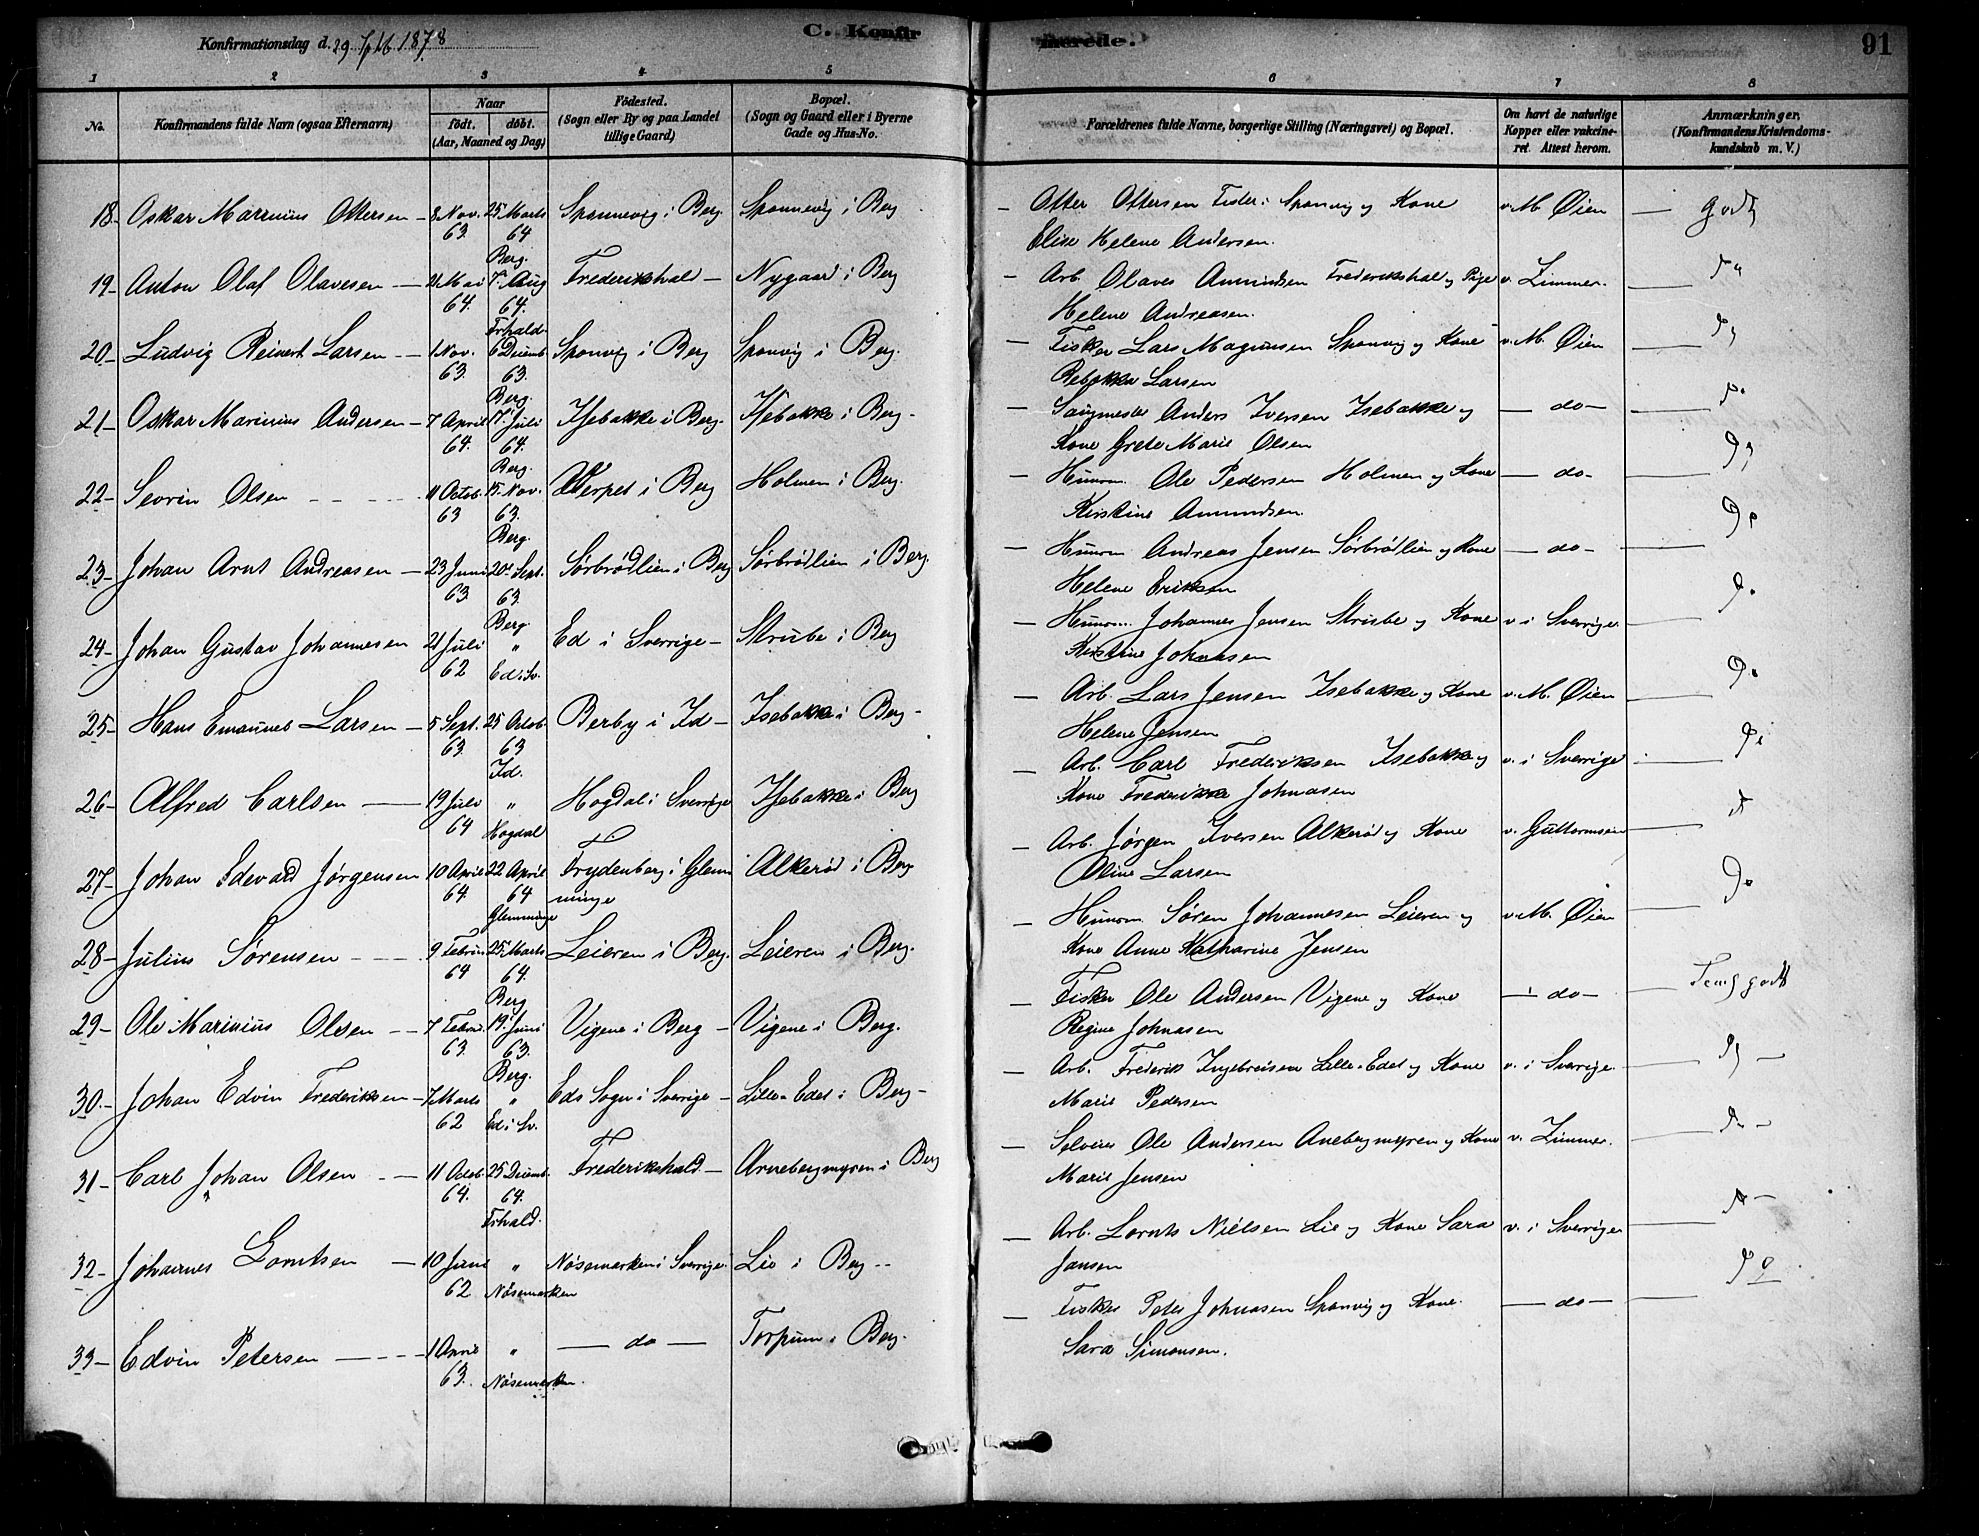 Konfirmationsdag d. 29 Sptb 1878
C. Konfir
merede.
91
1 2 3 4 5 6 7 8
No.
Konfirmandens fulde Navn (ogsaa Efternavn)
Naar
födt. döbt.
(Aar, Maaned og Dag)
Födested.
(Sogn eller By og paa Landet
tillige Gaard)
Bopæl.
(Sogn og Gaard eller i Byerne
Gade og Hus-No.
Forældrenes fulde Navne, borgerlige Stilling (Næringsvei) og Bopæl.
Om havt de naturlige
Kopper eller vakcine-
ret. Attest herom.
Anmærkninger.
(Konfirmandens Kristendoms-
kundskab m. V.)
18 - Oskar Marinius Ottersen - 8 Nov. 63. 25 Marts 64 Berg. Sponnevig i Berg. Sponnevig i Berg
- Otter Ottersen Fisker i Sponvig og Kone v. M. Øien - Godt
Elise Helene Andersen.
19 - Anton Olaf Olavesen - Mai 64. 7 Aug 64. Frhald. Frederikshald - Nygaard i Berg
- Arb. Olaves Amundsen Frederikshald og Pige v. Zimmer.
Helene Andreasen.
20 - Ludvig Reinert Larsen - 1 Nov. 63. 6 Decemb 63. Berg. Sponvig i Berg Sponvig i Berg.
- Fisker Lars Magnusen Sponvig og Kone v. M. Øien
Rebekka Larsen
21 - Oskar Marinius Andersen - 7 April 64. 17 Juli 64. Berg. Isebakke i Berg. Isebakke i Berg -
- Saugmester Anders Iversen Isebakke og - do -
Kone Grete Marie Olsen
22 - Sevrin Olsen - 11 Octob. 63 15 Nov. 63. Berg. i Berg Holmen i Berg.
- Husm. Ole Pedersen Holmen og Kone - do -
Kirstine Amundsen
23 - Johan Arnt Andreasen - 23 Juni 63 20 Sept. 63. Berg. Sørbrødlien i Berg Sørbrødlien i Berg.
- Husm Andreas Jensen Sørbrødlien og Kone - do -
Helene Eriksen
24 - Johan Gustav Johannesen 21 Juli 62 " Ed i Sv. Ed i Sverrige - Strube i Berg
- Husm. Johannes Jensen og Kone v. i Sverrige.
Kirstine Johnasen
25 - Hans Emanuel Larsen - 5 Sept. 63 25 Octob 63 Id. Berby i Id - Isebakke i Berg -
- Arb. Lars Jensen Isebakke og Kone v. M. Øien
Helene Jensen
26 - Alfred Carlsen - 19 Juli 64 " Hogdal Hogdal i Sverrige Isebakke i Berg
- Arb. Carl Frederiksen Isebakke og v. i Sverrige
Kone Frederikke Johnasen
27 - Johan Edevard Jørgensen 10 April 64. 22 April 64 Glemminge Frydenberg i Glemminge Alkerød i Berg
- Arb. Jørgen Iversen Alkerød og Kone v. Guttormsen
Oline Larsen
28 - Julius Sørensen - 9 Febru 64 25 Marts 64. Berg Leieren i Berg. Leieren i Berg.
- Husm. Søren Johannesen Leieren og v. M. Øien
Kone Anne Katharine Jensen
29 - Ole Marinius Olsen - 7 Febru. 63. 19 Juni 63. Berg. Vigene i Berg - Vigene i Berg.
- Fisker Ole Andersen Vigene og Kone - do - godt
Regine Johnasen
30. - Johan Edvin Frederiksen - 7 Marts 62 " Ed i Sv. Eds Sogn i Sverige - Lille-Edet i Berg -
- Arb. Frederik Ingebretsen Lille-Edet og Kone v. i Sverrige.
Marie Pedersen
31 - Carl Johan Olsen - 11 Octob. 64. 25 Decemb. 64. Frhald. Frederikshald - Arnebergmyren i Berg
- Selveier Ole Andersen Anebergmyren og Kone v. Zimmer.
Marie Jensen
32 - Johannes Lorntsen - 10 Juni 62 " Nøsemarken Nøsemarken i Sverrige. Lie i Berg -
- Arb. Lornts Nielsen Lie og Kone Sara v. i Sverrige
Jansen
33 - Edvin Petersen - 1 April 63. " Nøsemarken. - do - Torpum i Berg.
- Fisker Peter Johnasen Sponvig og Kone - do -
Sara Simonsen.